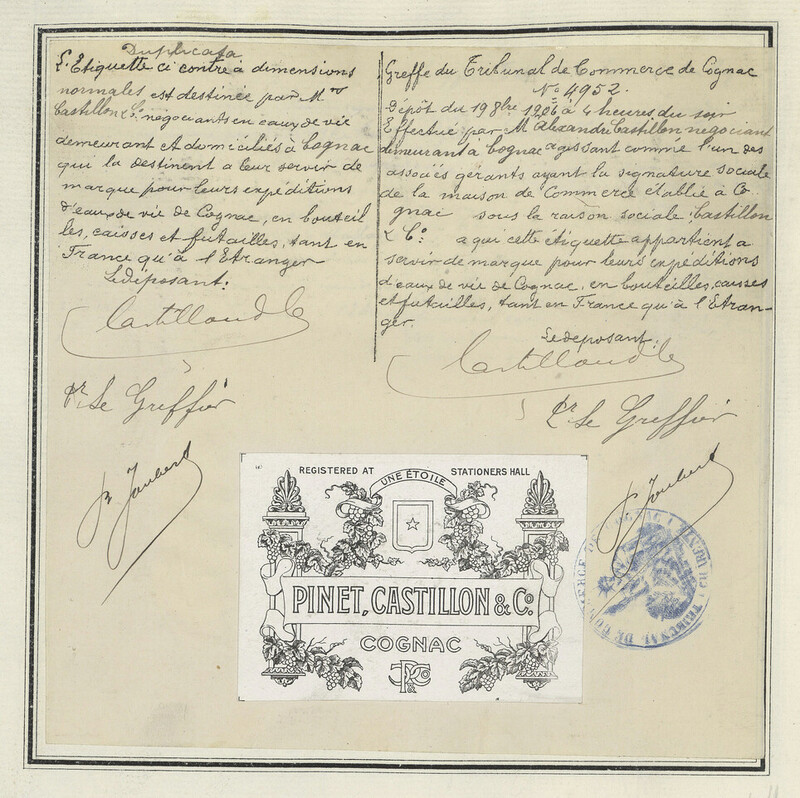 Duplicata
L'Etiquette ci contre à dimensions
normales est destinée par Mrs
Castillon & Cº. négociants en eaux de vie
demeurant et domiciliés à Cognac
qui la destinent a leur servir de
marque pour leurs expéditions
d'eaux de vie de Cognac, en bouteil
les, caisses et futailles, tant en
France qu'à l'Etranger
Le déposant:
Castillon & Cie
Pr. Le Greffier
Joubert
Greffe du Tribunal de Commerce de Cognac
Nº 4952.
Dépôt du 19 8bre 1906 à 4 heures du soir
Effectué par M Alexandre Castillon négociant
demeurant à Cognac agissant comme l'un des
associés gérants ayant la signature sociale
de la maison de Commerce établie à Co
gnac sous la raison sociale: Castillon
& Cº: a qui cette étiquette appartient a
servir de marque pour leurs expéditions
d'eaux de vie de Cognac, en bouteilles, caisses
et futailles, tant en France qu'à l'Etran-
ger.
Le déposant:
Castillon & Cie
Pr. Le Greffier
Joubert
REGISTERED AT STATIONERS HALL
UNE ÉTOILE
PINET, CASTILLON & Cº.
COGNAC
TRIBUNAL DE COMMERCE DE COGNAC